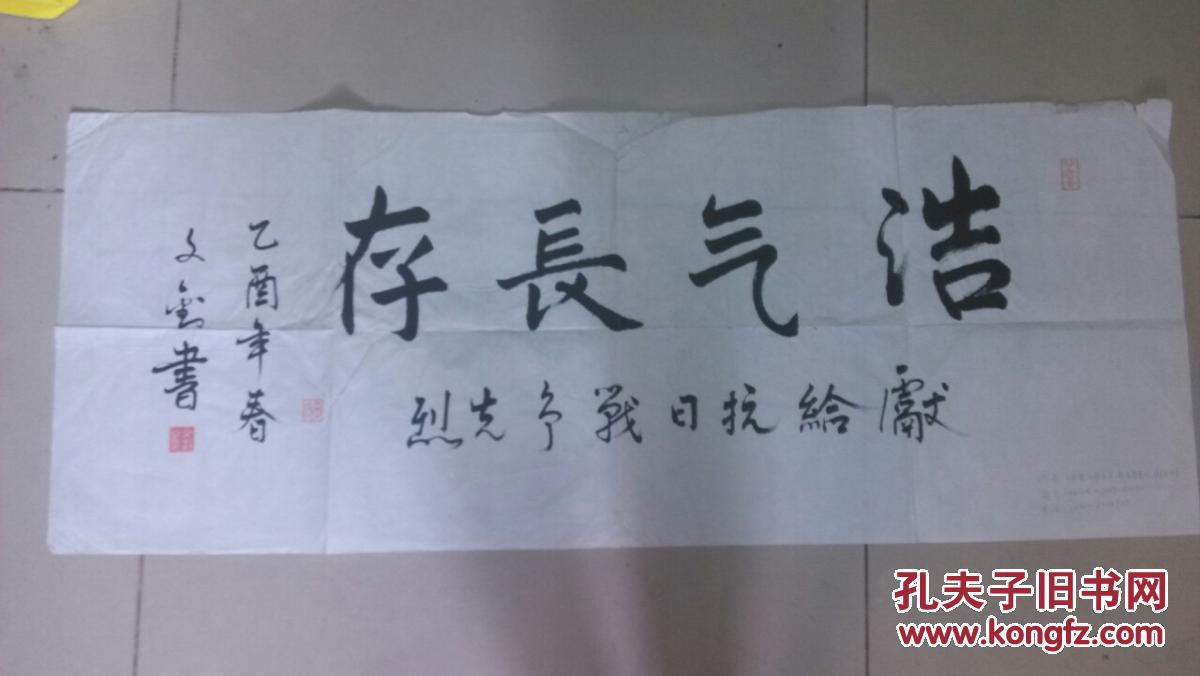 浩气長存
獻給抗日戰争先烈
乙酉年春
文 書
孔夫子旧书网
www.kongfz.com